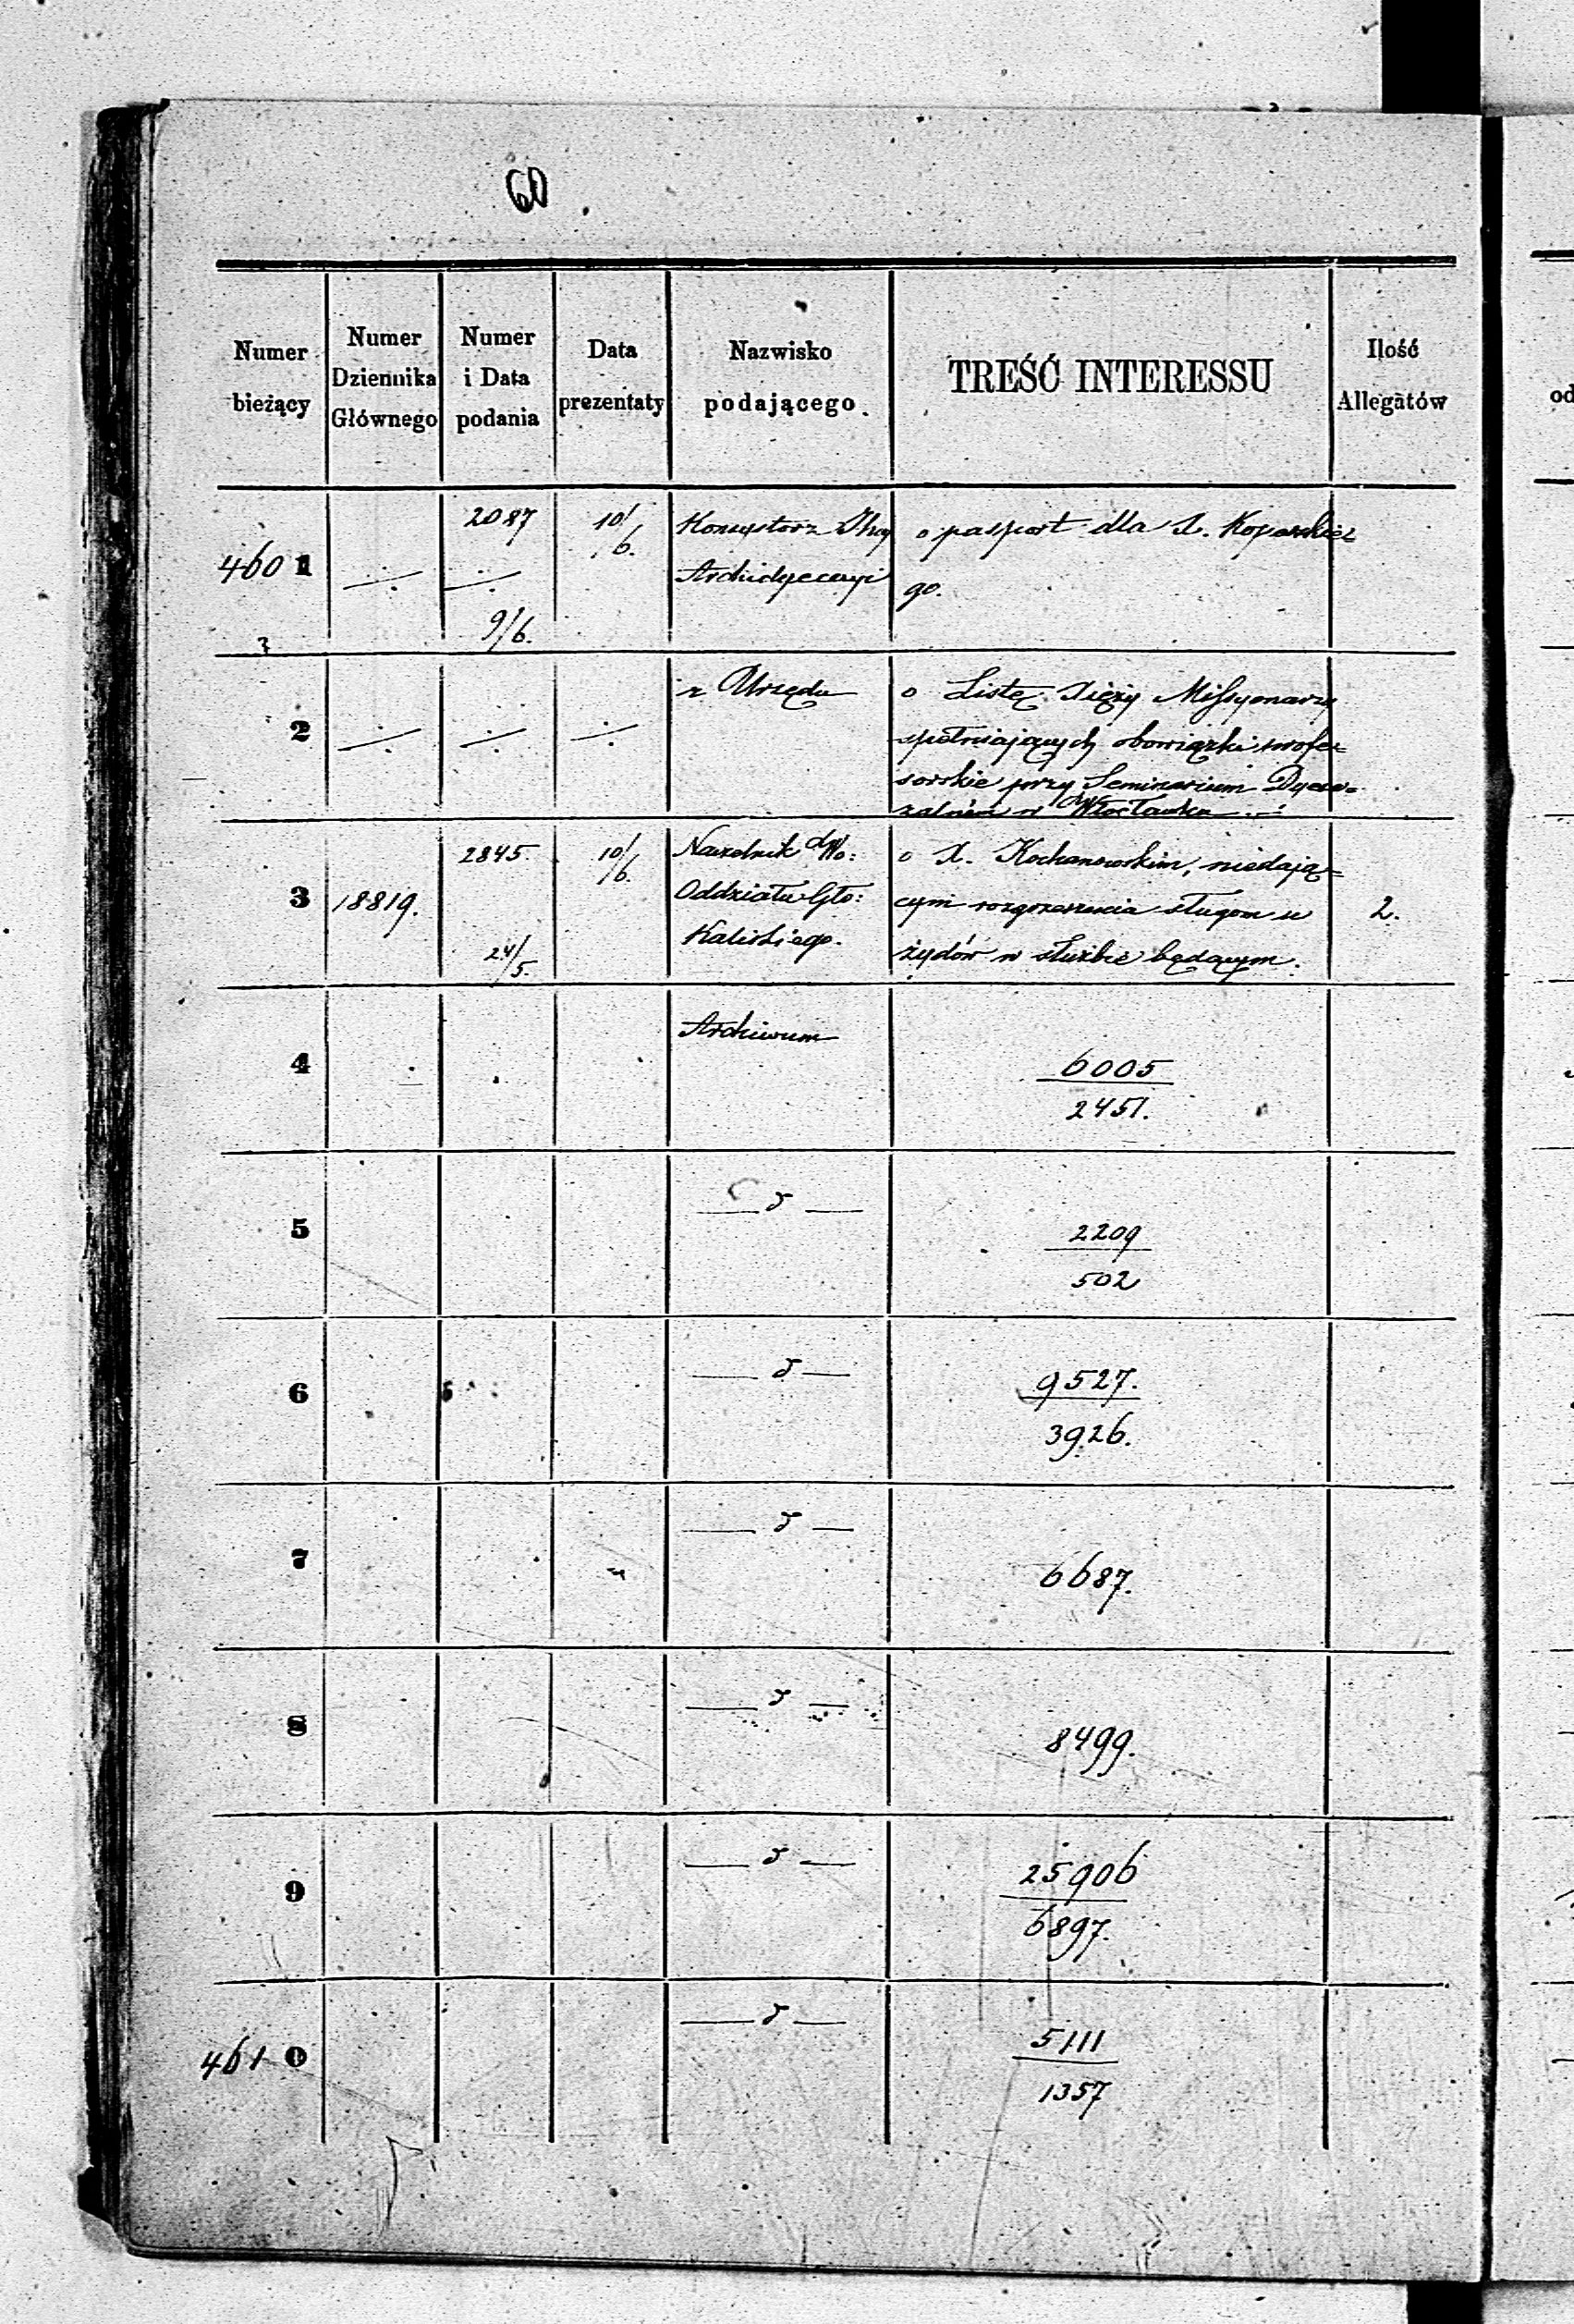 60
Numer bieżący
Numer Dziennika Głównego
Numer i Data podania
Data prezentaty
Nazwisko podającego.
TREŚĆ INTERESSU
Ilość Allegatów
4601 2087 9/6. 10/6.
Konsystorz
Archidyecezyi
o passport dla X.
go.
2
z Urzędu
o Listę Xięży Missyonarzy
spełniających obowiązki profes-
sorskie przy Seminarium Dyece-
zalném w Włocławku
3 18819. 2845. 24/5. 10/6.
Naczelnik Wo:
Oddziału Gło:
Kaliskiego.
o X. Kochanowskim, niedają-
cym rozgrzeszenia sługom u
żydów w służbie będącym.
2.
4 Archiwum
6005
2451.
5 — d —
2209
502
6 — d —
9527.
3926.
7 — d —
6687.
8 — d —
8499.
9 — d —
25906
6897.
4610 — d —
5111
1357